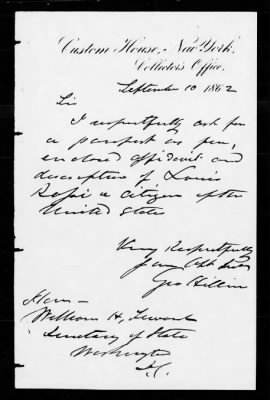 Custom House, New York.
Collector's Office.
September 10 1862
Sir
I respectfully ask for
a passport as per,
enclosed affidavit and
description of Louis
a citizen of the
United State
Very Respectfully
Your Obt Svt
Geo
Hon —
William H, Seward
Secretary of State
Washington
D.C.